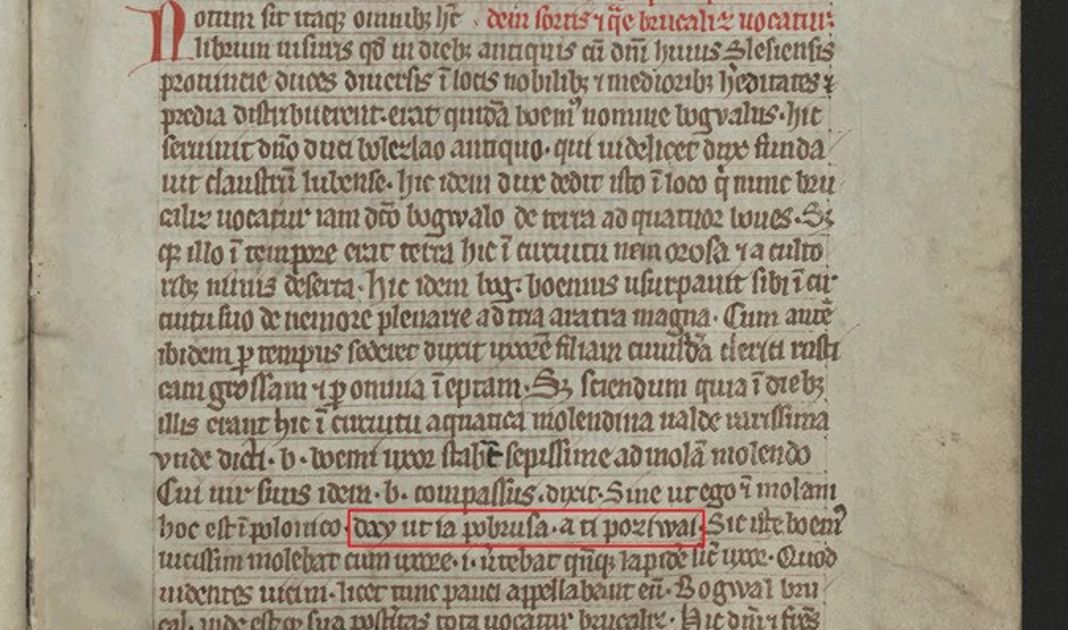 Notum sit itaq; omnib; hc̄ · dem sortis ⁊ q̄re brucaliz uocatur:
librum uisuris qđ in dieb; antiquis cū dn̄i huius Slesiensis
prouincie duces diuersis ī locis nobilib; ⁊ mediorib; h'editates ⁊
predia distribuerent · erat quidā boemꝰ nomine bogvalus · hic
seruiuit dn̄o duci bolezlao antiquo · qui uidelicet dux funda
uit claustrū lubense · hic idem dux dedit isto ī loco q̇ nunc bru
caliz uocatur iam dc̄o bogwalo de terra ad quatuor boues · S;
q; illo ī tempore erat terra hic ī circuitu nemorosa ⁊ a culto
rib; nimis deserta · hic idem bog: boemus usurpauit sibi ī cir
cuitu suo de nemore plenarie ad tria aratra magna · Cum autē
ibidem ꝑ tempus sederet duxit uxorē filiam cuiusdā clerici rusti
cam grossam ⁊ ꝑ omnia ī eptam · S; sciendum quia ī dieb;
illis erant hic ī circuitu aquatica molendina ualde rarissima
vnde dicti · b · boemi uxor stabāt sepissime ad molā molendo
Cui uir suus idem · b · compassus · dixit · Sine ut ego ī molam
hoc est ī polonico · day ut ia pobrusa · a ti poziwai · Sic iste boemꝰ
uicissim molebat cum uxore · i · u'tebat qn̄q; lapidē sic̄ uxor · Quod
uidentes uicini · licet tunc pauci appellabant eū · Bogwal bru
cal · inde est q; sua post'itas tota uocatur brucaliz · Hic dn̄i ⁊ fr̄es